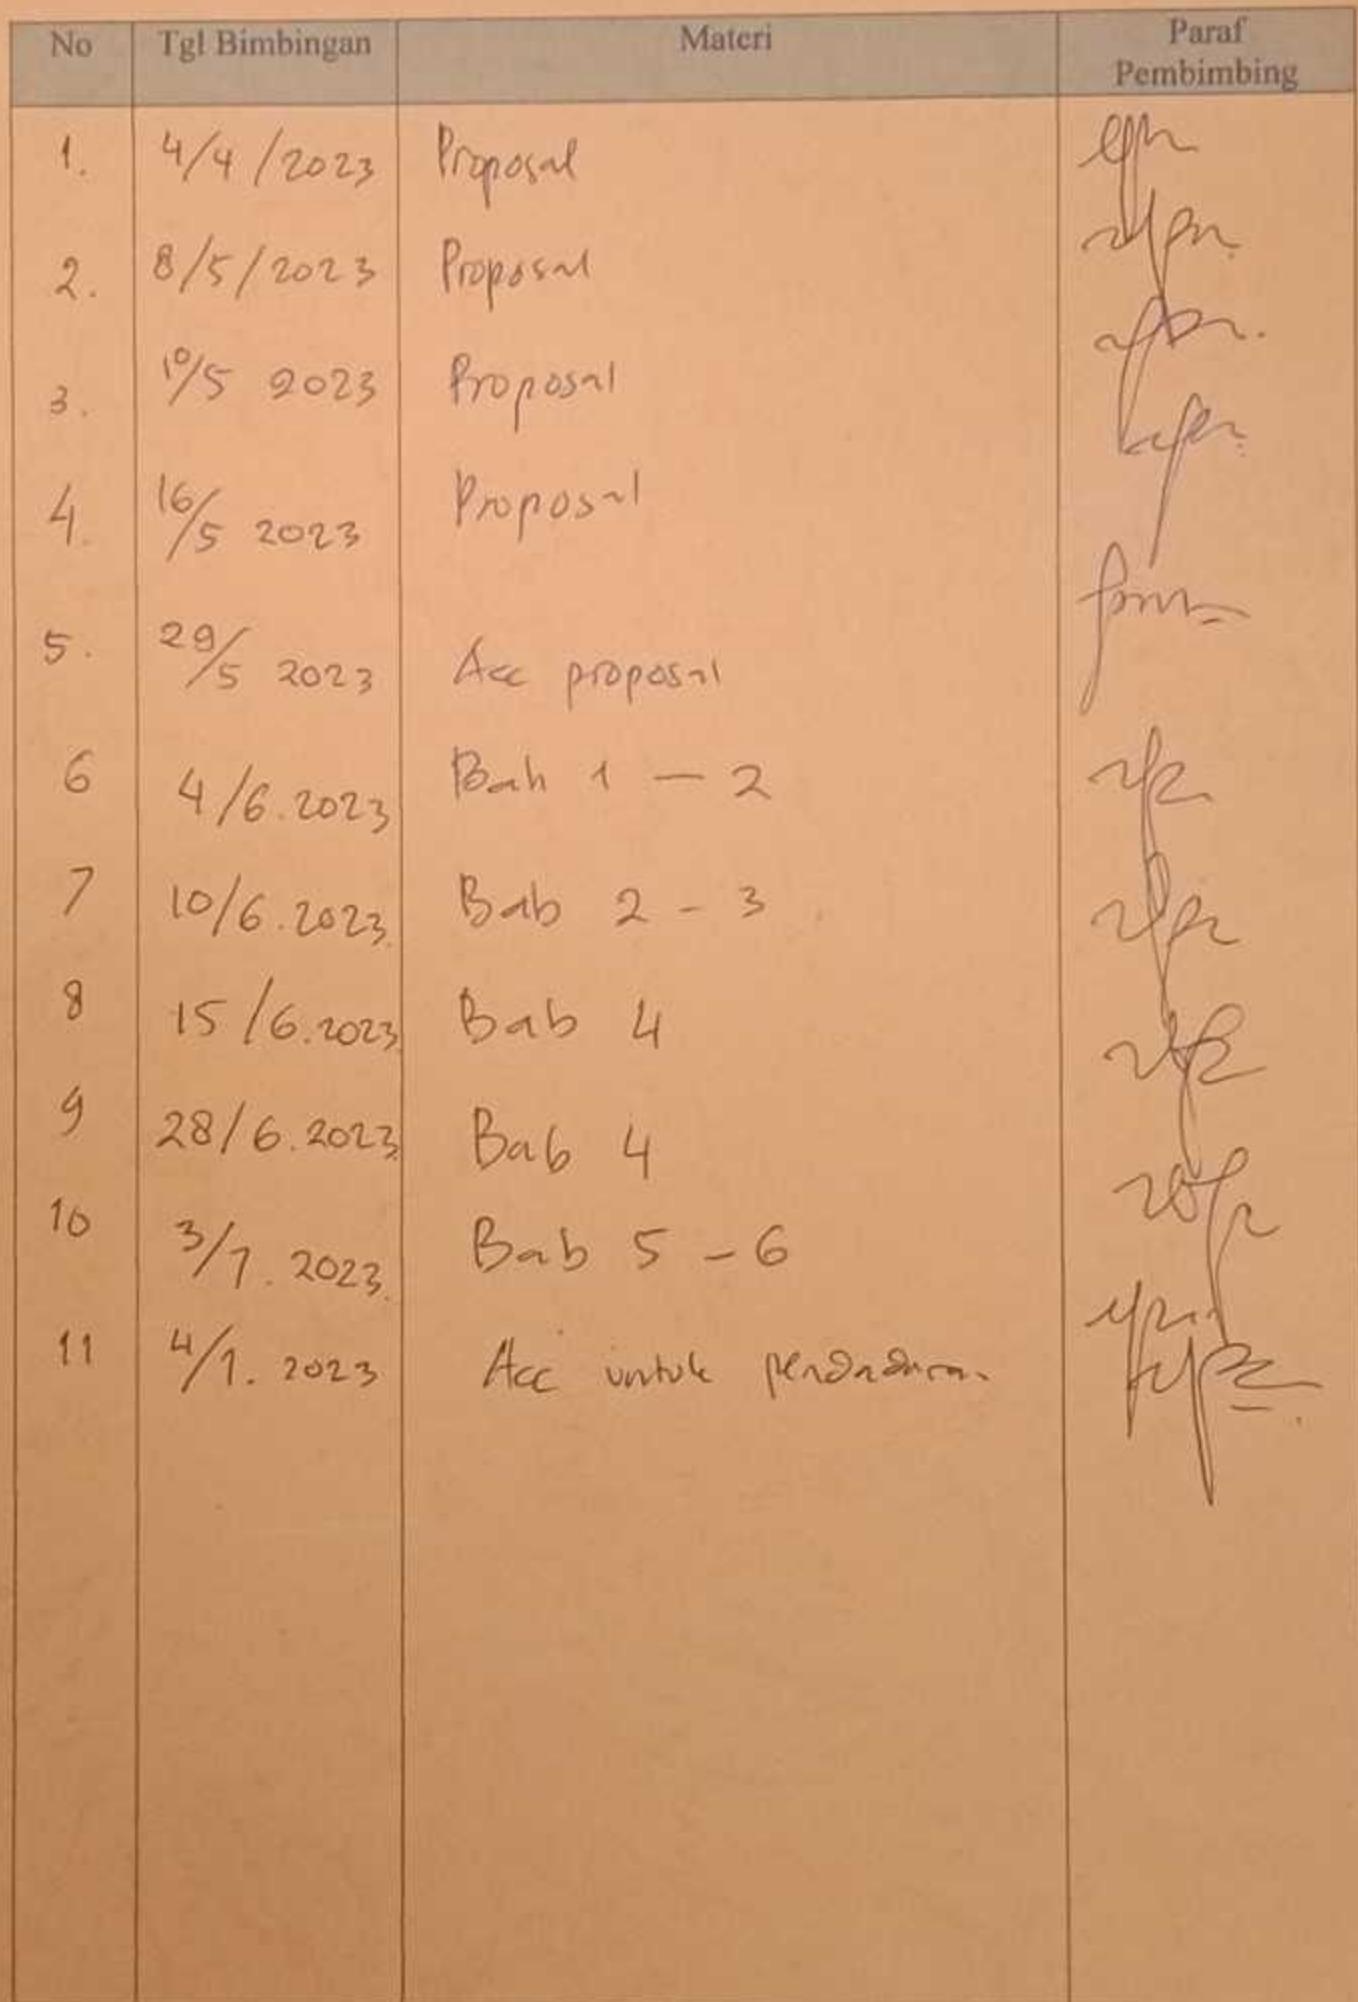 No Tgl Bimbingan Materi Paraf
Pembimbing
1. 4/4/2023 Proposal
2. 8/5/2023 Proposal
3. 10/5 2023 Proposal
4. 16/5 2023 Proposal
5. 29/5 2023 Acc proposal
6 4/6.2023 Bab 1 - 2
7 10/6.2023 Bab 2 - 3
8 15/6.2023 Bab 4
9 28/6.2023 Bab 4
10 3/7.2023 Bab 5 - 6
11 4/7.2023 Acc untuk pendadaran